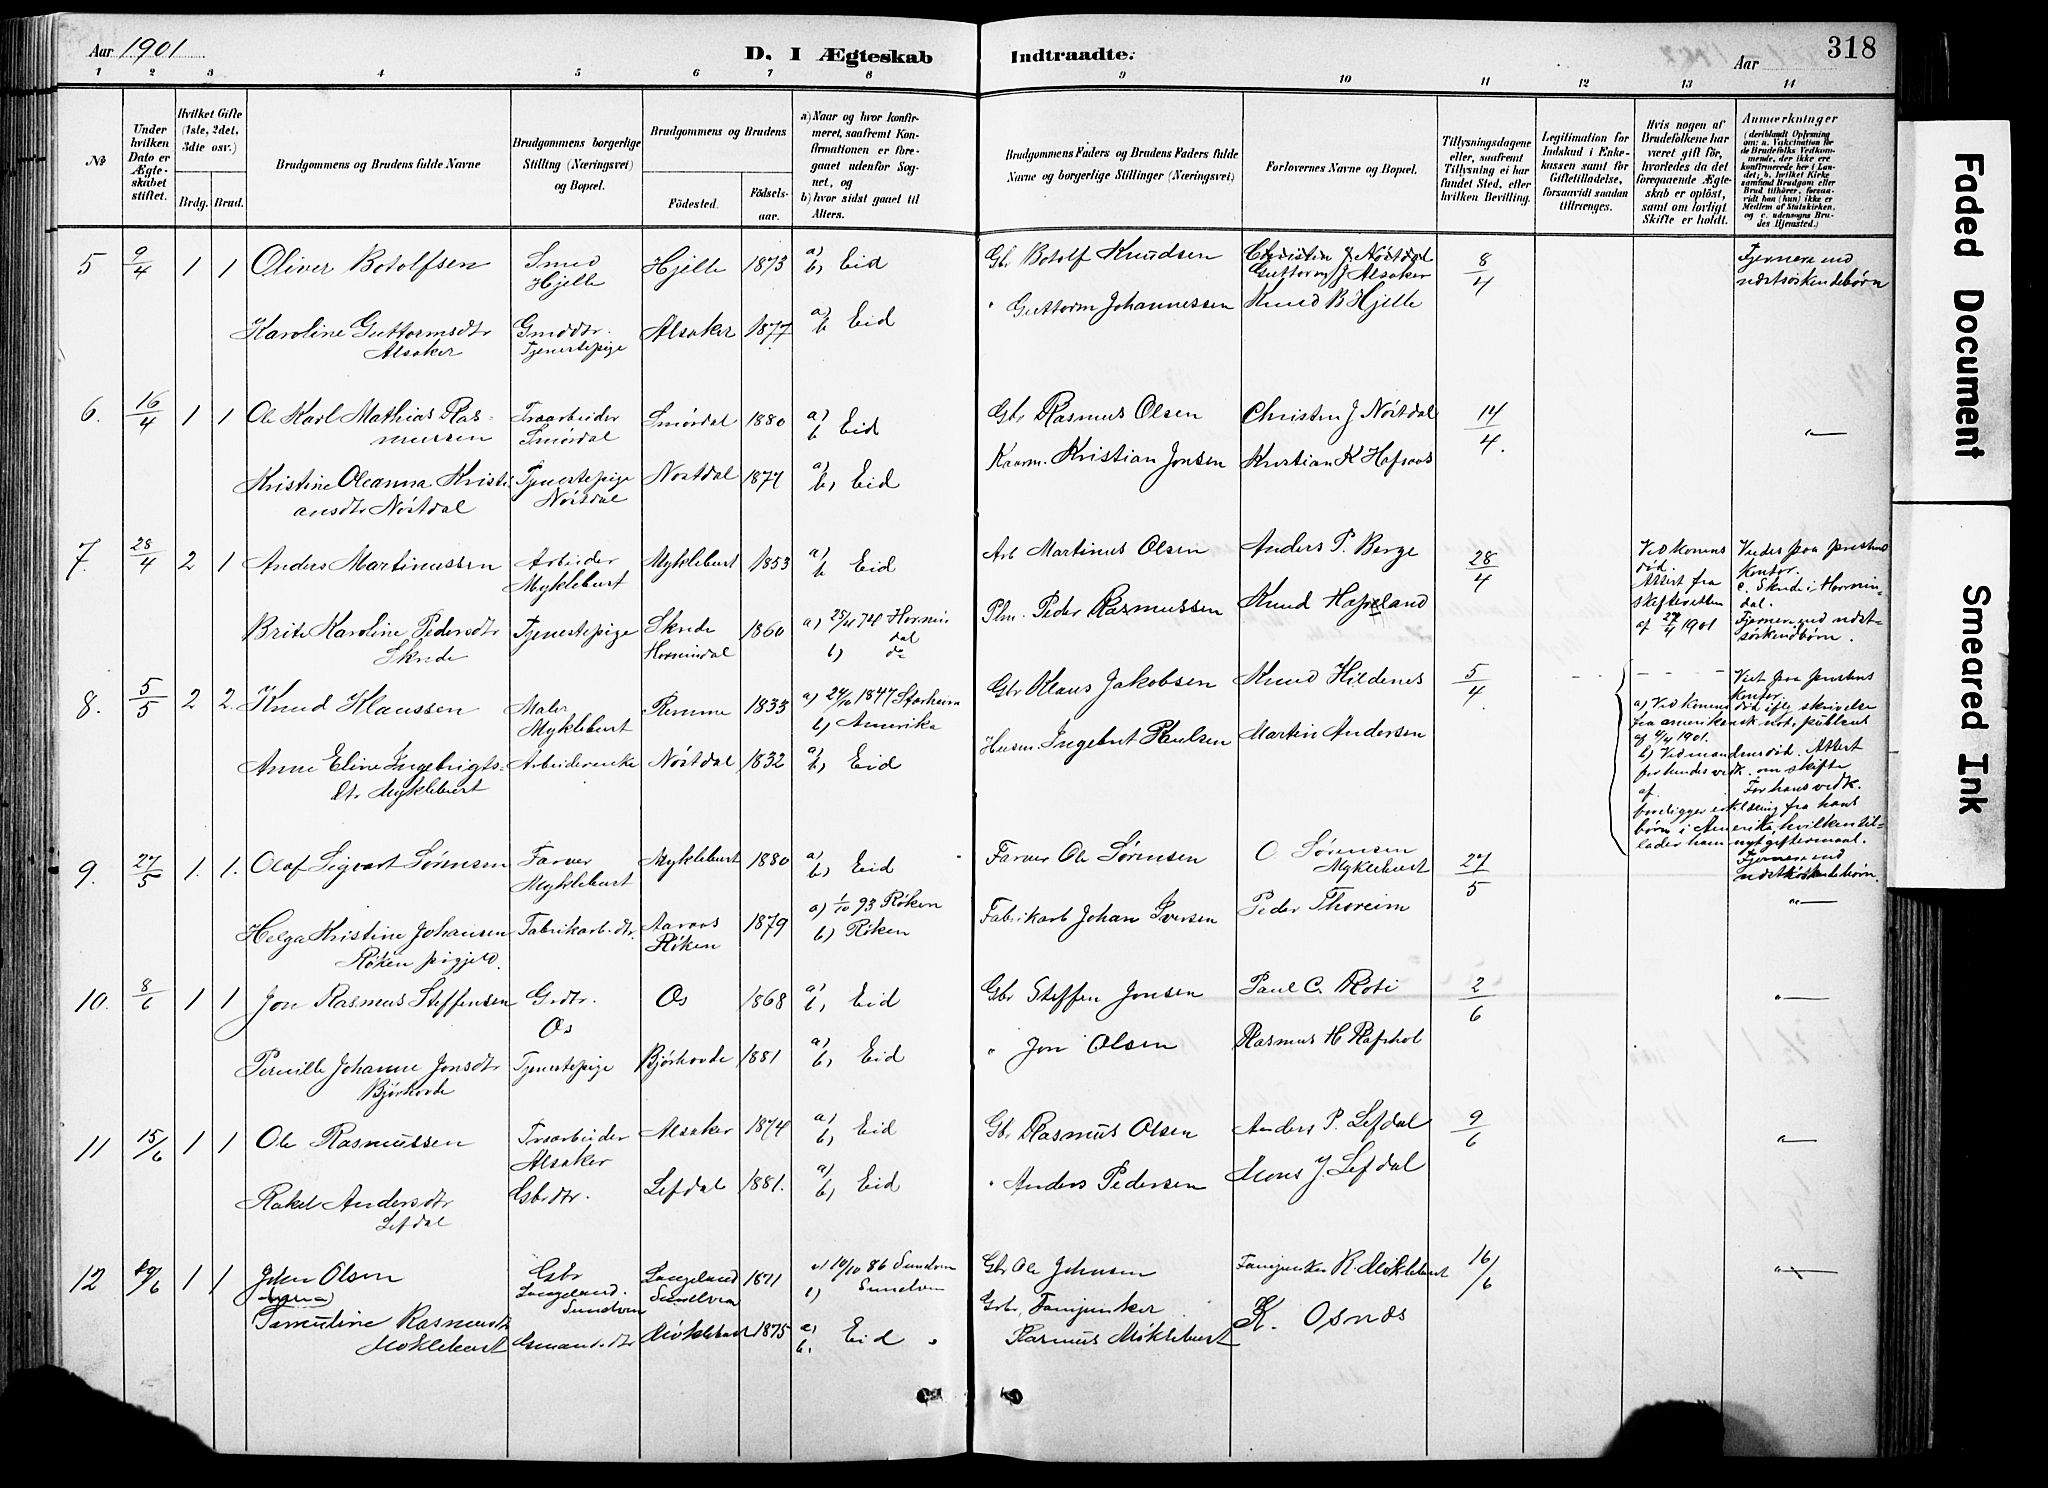 Aar 1901
D. I Ægteskab Indtraadte.
Aar
318
1 2 3 4 5 6 7 8 9 10 11 12 13 14
No
Under hvilken Dato er Ægteskabet stiftet.
Hvilket Gifte (1ste, 2det, 3dte osv.)
Brdg. Brud.
Brudgommens og Brudens fulde Navne
Brudgommens borgerlige Stilling (Næringsvei) og Bopæl.
Brudgommens og Brudens
Fødested.
Fødselsaar.
a) Naar og hvor konfirmeret, saafremt Konfirmationen er foregaaet udenfor Sognet, og
b) hvor sidst gaaet til Alters.
Brudgommens Faders og Brudens Faders fulde Navne og borgerlige Stillinger (Næringsvei)
Forlovernes Navne og Bopæl.
Tillysningsdagene eller, saafremt Tillysning ei har fundet Sted, efter hvilken Bevilling.
Legitimation for Indskud i Enkekassen samt for Giftetilladelse, forsaavidt saadan tiltrænges.
Hvis nogen af Brudefolkene har været gift før, hvorledes da det foregaaende Ægteskab er opløst, samt om lovligt Skifte er holdt.
Anmærkninger
(deriblandt Oplysning om: a. Vakcination for de Brudefolks Vedkommende, der ikke ere konfirmerede her i Landet; b. hvilket Kirkesamfund Brudgom eller Brud tilhører, forsaavidt han (hun) ikke er Medlem af Statskirken, og c. udensogns Brudes Hjemsted.)
5 9/4 1 1 Oliver Botolfsen Smed Hjelle Hjelle 1873 a) b, Eid Gbr Botolf Knudsen Christen J Nøstdal 8/4 Fjernere end
Guttorm J Alsaker næstsøskendebørn
Karoline Guttormsdtr Alsaker Gmddtr. Tjenestepige Alsaker 1877 a) b Eid " Guttorm Johannessen Knud B Hjelle
6. 16/4 1 1 Ole Karl Mathias Rasmussen Træarbeider Smørdal Smørdal 1880 a) b Eid Gbr Rasmus Olsen Christen J Nøstdal 14/4. "
Kristine Oleanna Kristiansdtr Nøstdal Tjenestepige Nøstdal Nøstdal 1877 a) b, Eid Kaarm. Kristian Jonsen Kristian K Hafsaas
7. 28/4 2 1 Anders Martinussen Arbeider Myklebust Myklebust 1853 a) b Eid Arb Martinus Olsen Anders P. Berge 28/4 Ved konens død. Attest fra skifteretten af 27/4 1901 Viedes paa prestens kontor.
c. Skrede i Hornindal.
Fjernere end næstsøskendbørn.
Brite Karoline Pedersdtr Skrede Tjenestepige Skrede Hornindal 1860 a) 28/6 74 Hornindal b) do Plm. Peder Rasmussen Knud Hafseland
8. 5/5 2 2. Knud Klaussen Maler Myklebust Remme 1833 a) 24/10 1847 Starheim b) Amerika Gbr Klaus Jakobsen Knud Hildenes 5/4. Viet paa prestens kontor.
Anne Eline Ingebrigtsdtr Myklebust Arbeiderenke Nøstdal 1832 a) b) Eid Husm. Ingebrt Paulsen Martin Andersen
a) Ved konens død ifl. skrivelse
fra amerikansk not. publent
af 4/4 1901.
b) Ved mandens død. Attest
for hendes vedk. om skifte
af. For hans vedk.
foreligger erklæring fra hans
børn i Amerika, hvilken tillader ham nyt giftermaal.
Fjernere end
næstsøskendebørn.
9. 27/5 1. 1. Olaf Sigvart Sørensen Farver Myklebust Myklebust 1880 a) b) Eid Farver Ole Sørensen O. Sørensen Myklebust 27/5 "
Helga Kristine Johansen Røken prgjeld. Fabrikarb. dtr. Aaraas Røken 1879 a) 1/10 93 Røken b) Røken Fabrikarb Johan Iversen Peder Thoreim
10. 8/6 1 1 Jon Rasmus Steffensen Grdtr. Os Os 1868 a) b, Eid Gbr Steffen Jonsen Paul C. Roti 2/6 "
Pernille Johanne Jonsdtr Bjørhovde Tjenestepige Bjørhovde 1881 a) b, Eid " Jon Olsen Rasmus H Rafshol
11 15/6 1 1 Ole Rasmussen Træarbeider Alsaker Alsaker 1874 a) b, Eid Gbr Rasmus Olsen Anders P. Lefdal 9/6 "
Rakel Andersdtr Lefdal Gbrdtr. Lefdal 1881. a) b) Eid " Anders Pedersen Mons J. Lefdal
12 /6 1 1 John Olsen Gbr Langeland. Sundven Langeland Sundven 1871 a) 19/10 86 Sundven b) Sundven Gbr Ole Johnsen Fanejunker R. Møklebust 16/6 "
Rasmusdtr Møklebust Gmand. dtr Møklebust 1875 a) b. Eid Gbr, Fanejunker Rasmus Møklebust K. Osnæs
Faded Document
Smeared Ink